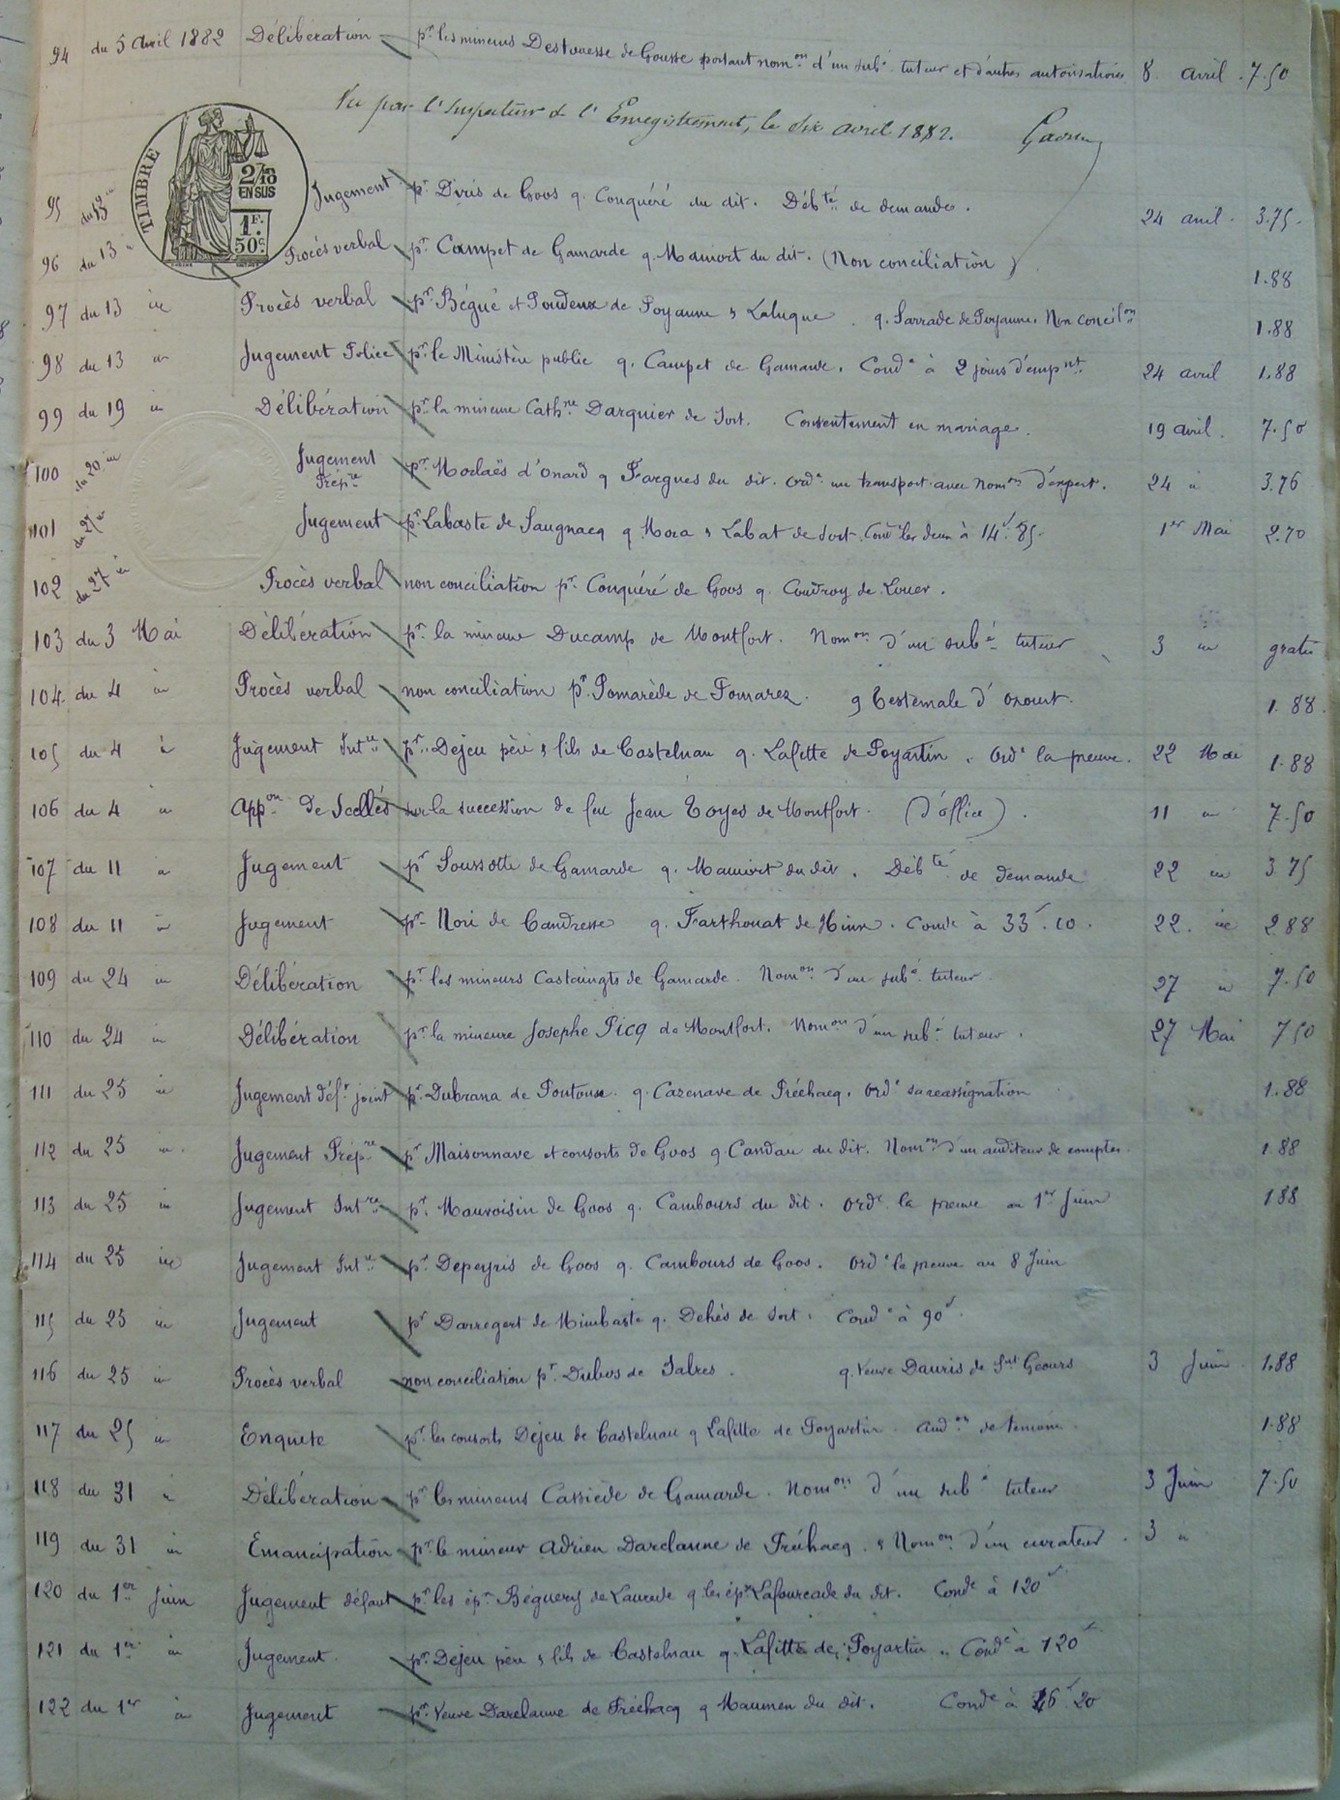 94 du 5 avril 1882 Délibération pr les mineurs Destouesse de Gousse portant nomon d'un subé tuteur et d'autres autorisations 8 avril 7.50
Vu par l'Inspecteur de l'Enregistrement, le dix avril 1882.
TIMBRE
2/10 EN SUS
1F. 50c.
95 du 13 Jugement pr Diris de Goos q. Conquéré du dit. Débté de demande. 24 avril 3.75
96 du 13 Procès verbal pr Campet de Gamarde q. Mamort du dit. (Non conciliation) 1.88
97 du 13 Procès verbal pr Bégué et Poudenx de Poyanne & Laluque q. Larrade de Poyanne. Non concilon 1.88
98 du 13 Jugement Police pr le Ministère public q. Campet de Gamarde. Conde à 2 jours d'empnt 24 avril 1.88
99 du 19 Délibération pr la mineure Cathne Darquier de Sort. Consentement en mariage. 19 avril. 7.50
100 du 20 Jugement Prépre pr Morlaës d'Onard q Fargues du dit. Orde un transport avec nomon d'expert. 24 3.76
101 du 27 Jugement pr Labaste de Saugnacq q Mora & Labat de Sort. Conde les deux à 14f 85. 1er Mai 2.70
102 du 27 Procès verbal non conciliation pr Conquéré de Goos q. Coudroy de Louer.
103 du 3 Mai Délibération pr la mineure Ducamp de Montfort. Nomon d'un subé tuteur 3 gratis
104 du 4 Procès verbal non conciliation pr Pomarède de Pomarez q Testemale d'Ozourt. 1.88
105 du 4 Jugement Intre pr Dejeu père & fils de Castelnau q. Lafitte de Poyartin. Orde la preuve. 22 Mai 1.88
106 du 4 appon de Scellés sur la succession de feu Jean Toyes de Montfort. (d'office). 11 7.50
107 du 11 Jugement pr Soussotte de Gamarde q. Mamort du dit. Débté de demande 22 3.75
108 du 11 Jugement pr Noré de Candresse q. Farthouat de Hinx. Conde à 33f.10. 22 2.88
109 du 24 Délibération pr les mineurs Castaingts de Gamarde. Nomon d'un subé tuteur 27 7.50
110 du 24 Délibération pr la mineure Josephe Picq de Montfort. Nomon d'un subé tuteur. 27 Mai 7.50
111 du 25 Jugement déft joint pr Dubrana de Pontonx q. Cazenave de Préchacq. Orde sa réassignation 1.88
112 du 25 Jugement Prépre pr Maisonnave et consorts de Goos q Candau du dit. Nomon d'un auditeur de comptes 1.88
113 du 25 Jugement Intre pr Mauvoisin de Goos q. Cambours du dit. Orde la preuve au 1er Juin 1.88
114 du 25 Jugement Intre pr Depeyris de Goos q. Cambours de Goos. Orde la preuve au 8 Juin
115 du 25 Jugement pr Darregert de Mimbaste q. Dehés de Sort. Conde à 90f
116 du 25 Procès verbal non conciliation pr Dubos de Sabres. q. Veuve Dauris de Snt Geours 3 Juin 1.88
117 du 25 Enquete pr les consorts Dejeu de Castelnau q Lafitte de Poyartin audon de temoins 1.88
118 du 31 Délibération pr les mineurs Cassiède de Gamarde. Nomon d'un subé tuteur 3 Juin 7.50
119 du 31 Emancipation pr le mineur Adrien Darclanne de Préchacq. & Nomon d'un curateur. 3
120 du 1er Juin Jugement défaut pr les épx Béguery de Laurède q les épx Lafourcade du dit. Conde à 120f
121 du 1er Jugement pr Dejeu père & fils de Castelnau q. Lafitte de Poyartin. Conde à 120f
122 du 1er Jugement pr Veuve Darclanne de Préchacq q Maumen du dit. Conde à 26f 20